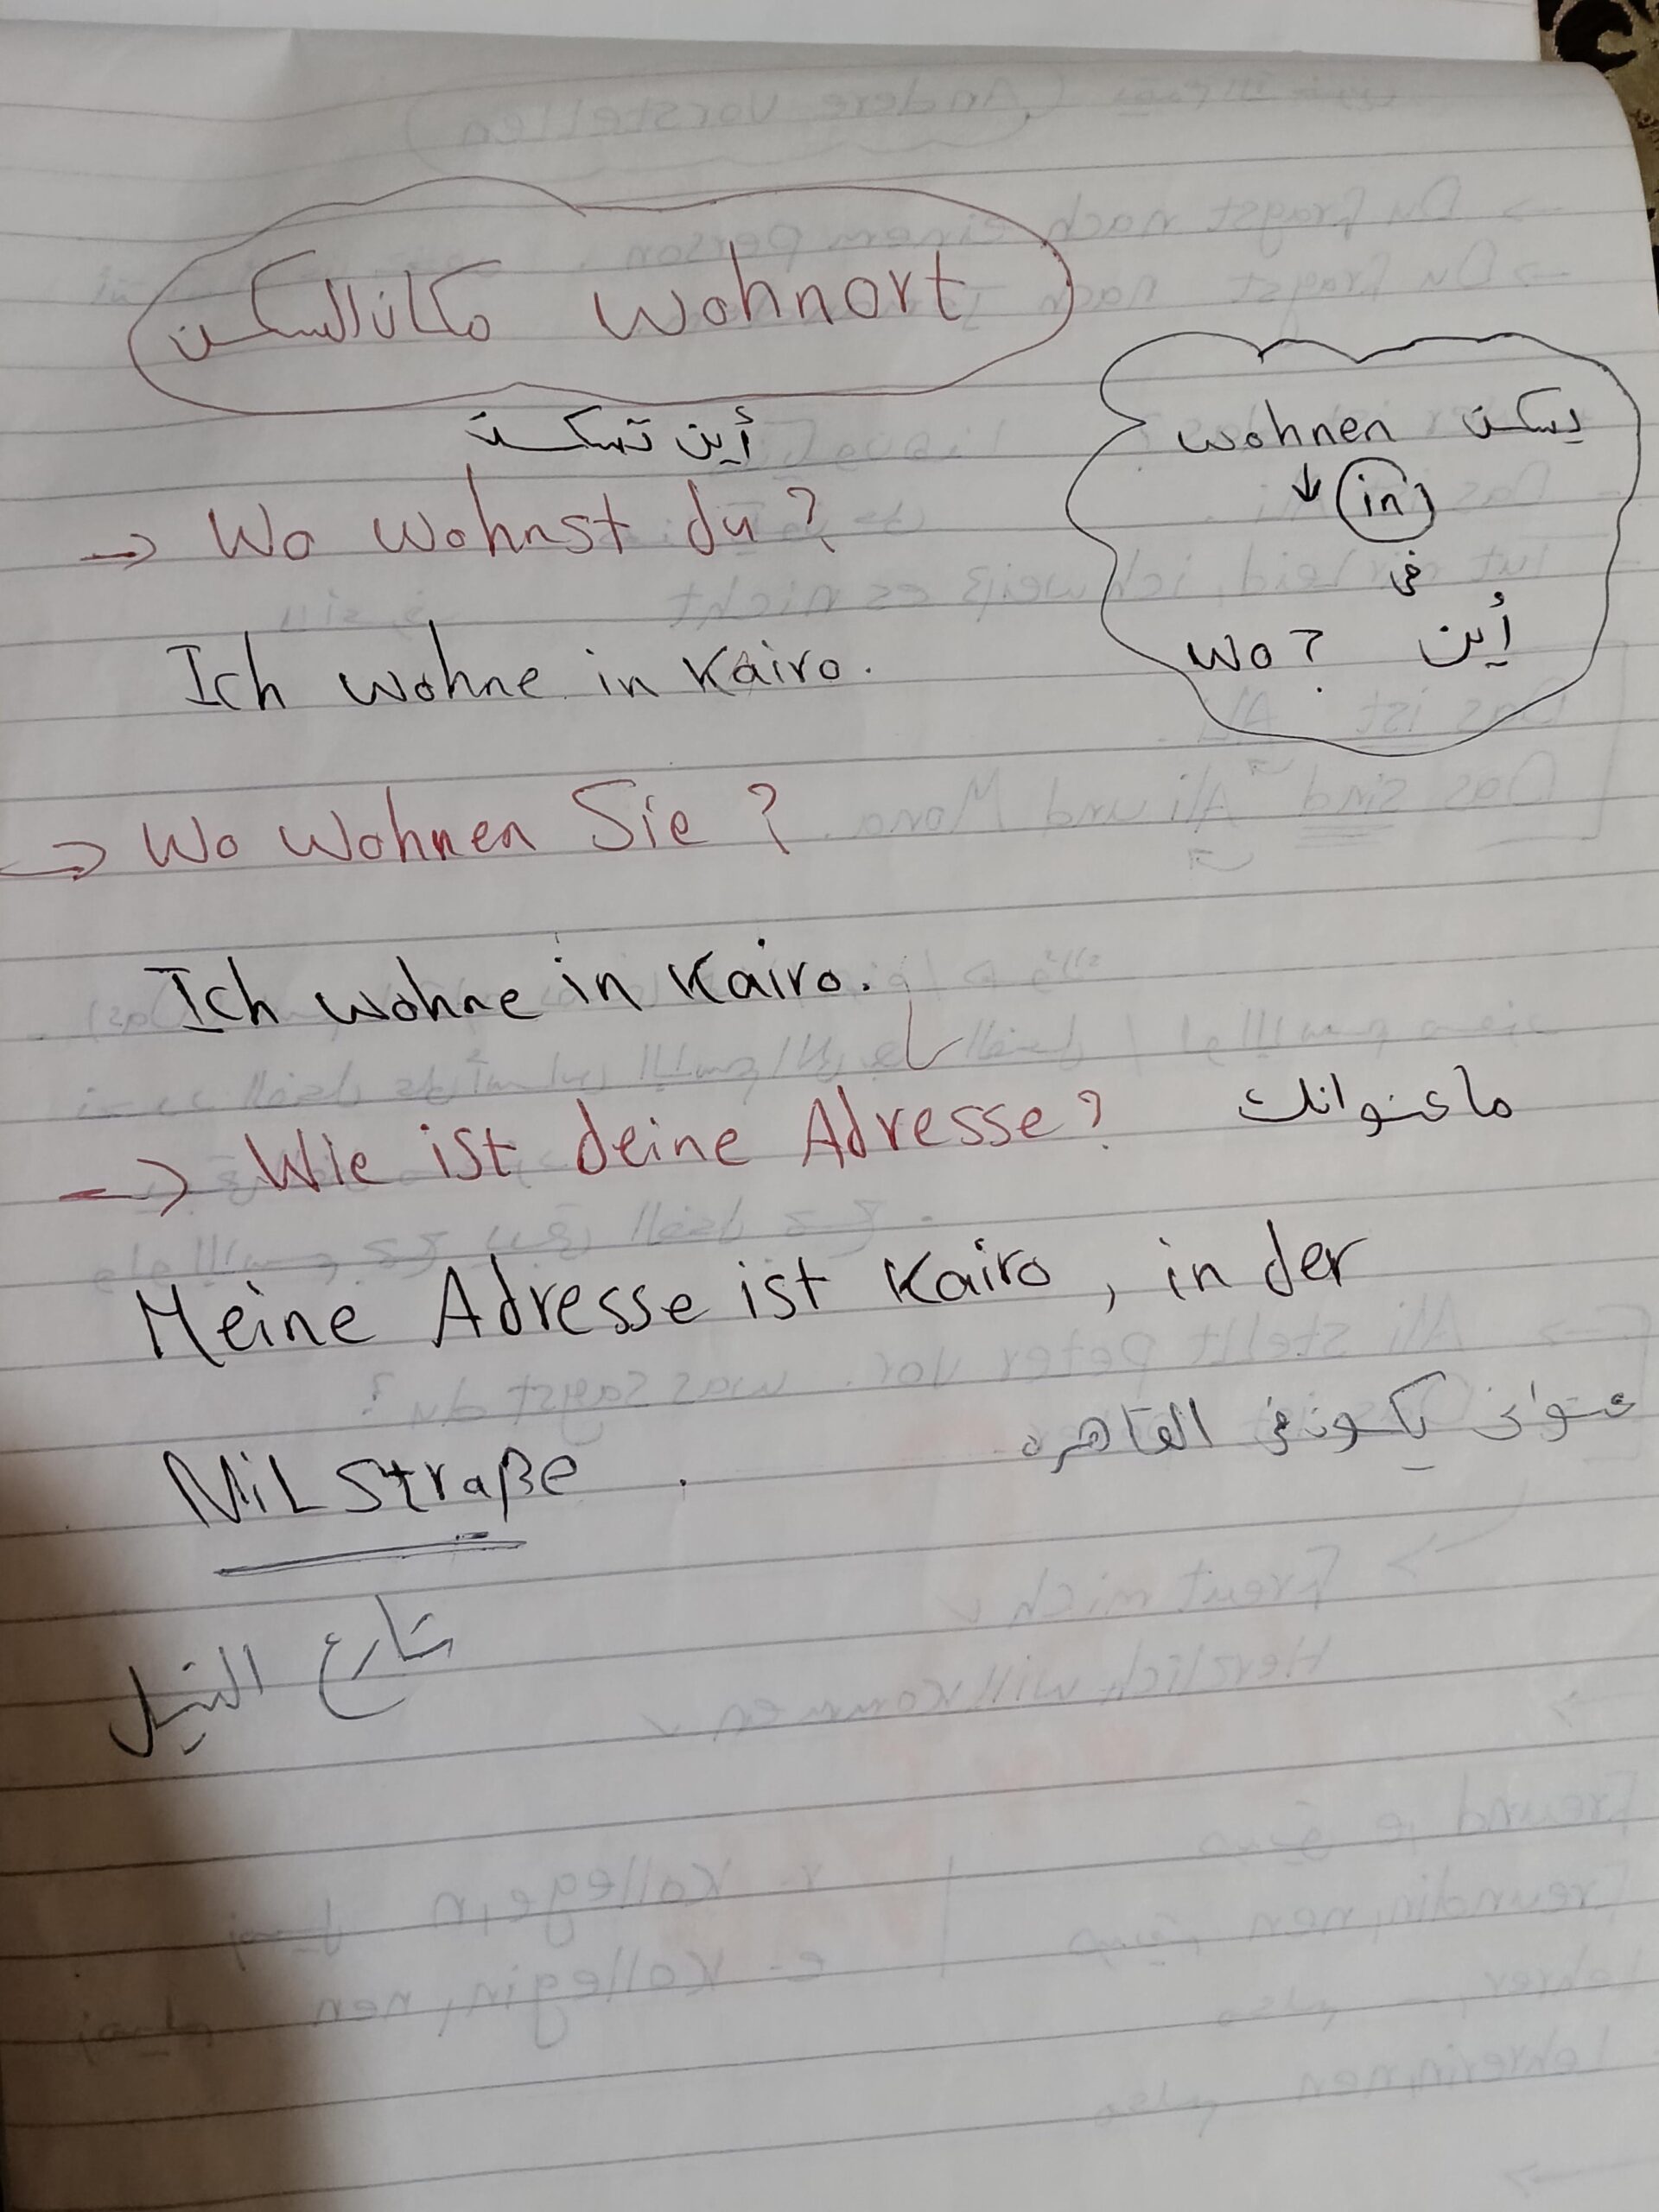 wohnort مكان السكن
أين تسكن
→ Wo wohnst du?
Ich wohne in Kairo.
wohnen يسكن
↓ in
في
wo? أين
→ Wo wohnen Sie?
Ich wohne in Kairo.
→ Wie ist deine Adresse? ما عنوانك
Meine Adresse ist Kairo, in der
NiL Straße.
عنواني يكون في القاهره
شارع النيل